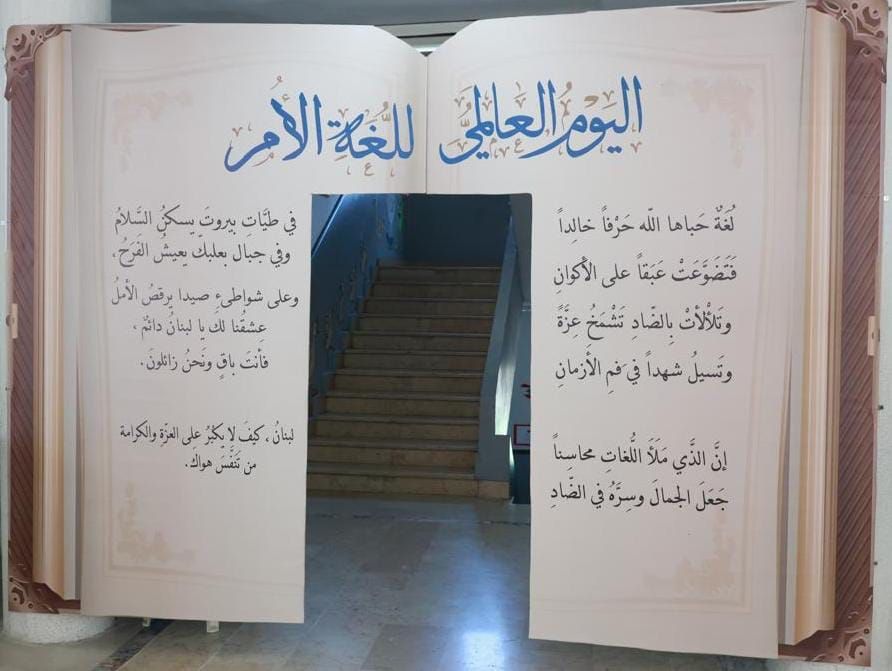 اليَوْمُ العَالَمِيُّ للُّغَةِ الأُمِّ
لُغَةٌ حَباها اللّه حَرْفاً خالِداً
فَتَضَوَّعَتْ عَبَقاً على الأكوانِ
وتَلألأتْ بِالضّادِ تَشْمَخُ عِزَّةً
وتَسيلُ شهداً في فَمِ الأزمانِ
إنَّ الذَّي مَلَأَ اللُّغاتِ محاسِناً
جَعَلَ الجمالَ وسِرَّهُ في الضّادِ
في طيَّاتِ بيروتَ يسكنُ السَّلامُ
وفي جبال بعلبك يعيشُ الفَرَحُ،
وعلى شواطىءِ صيدا يرقصُ الأملُ
عِشقُنا لك يا لبنانُ دائمٌ،
فأنتَ باقٍ ونحنُ زائلونَ.
لبنانُ، كيفَ لا يكبُرُ على العزّةِ والكرامة
من تَنَفَّسَ هواكَ.